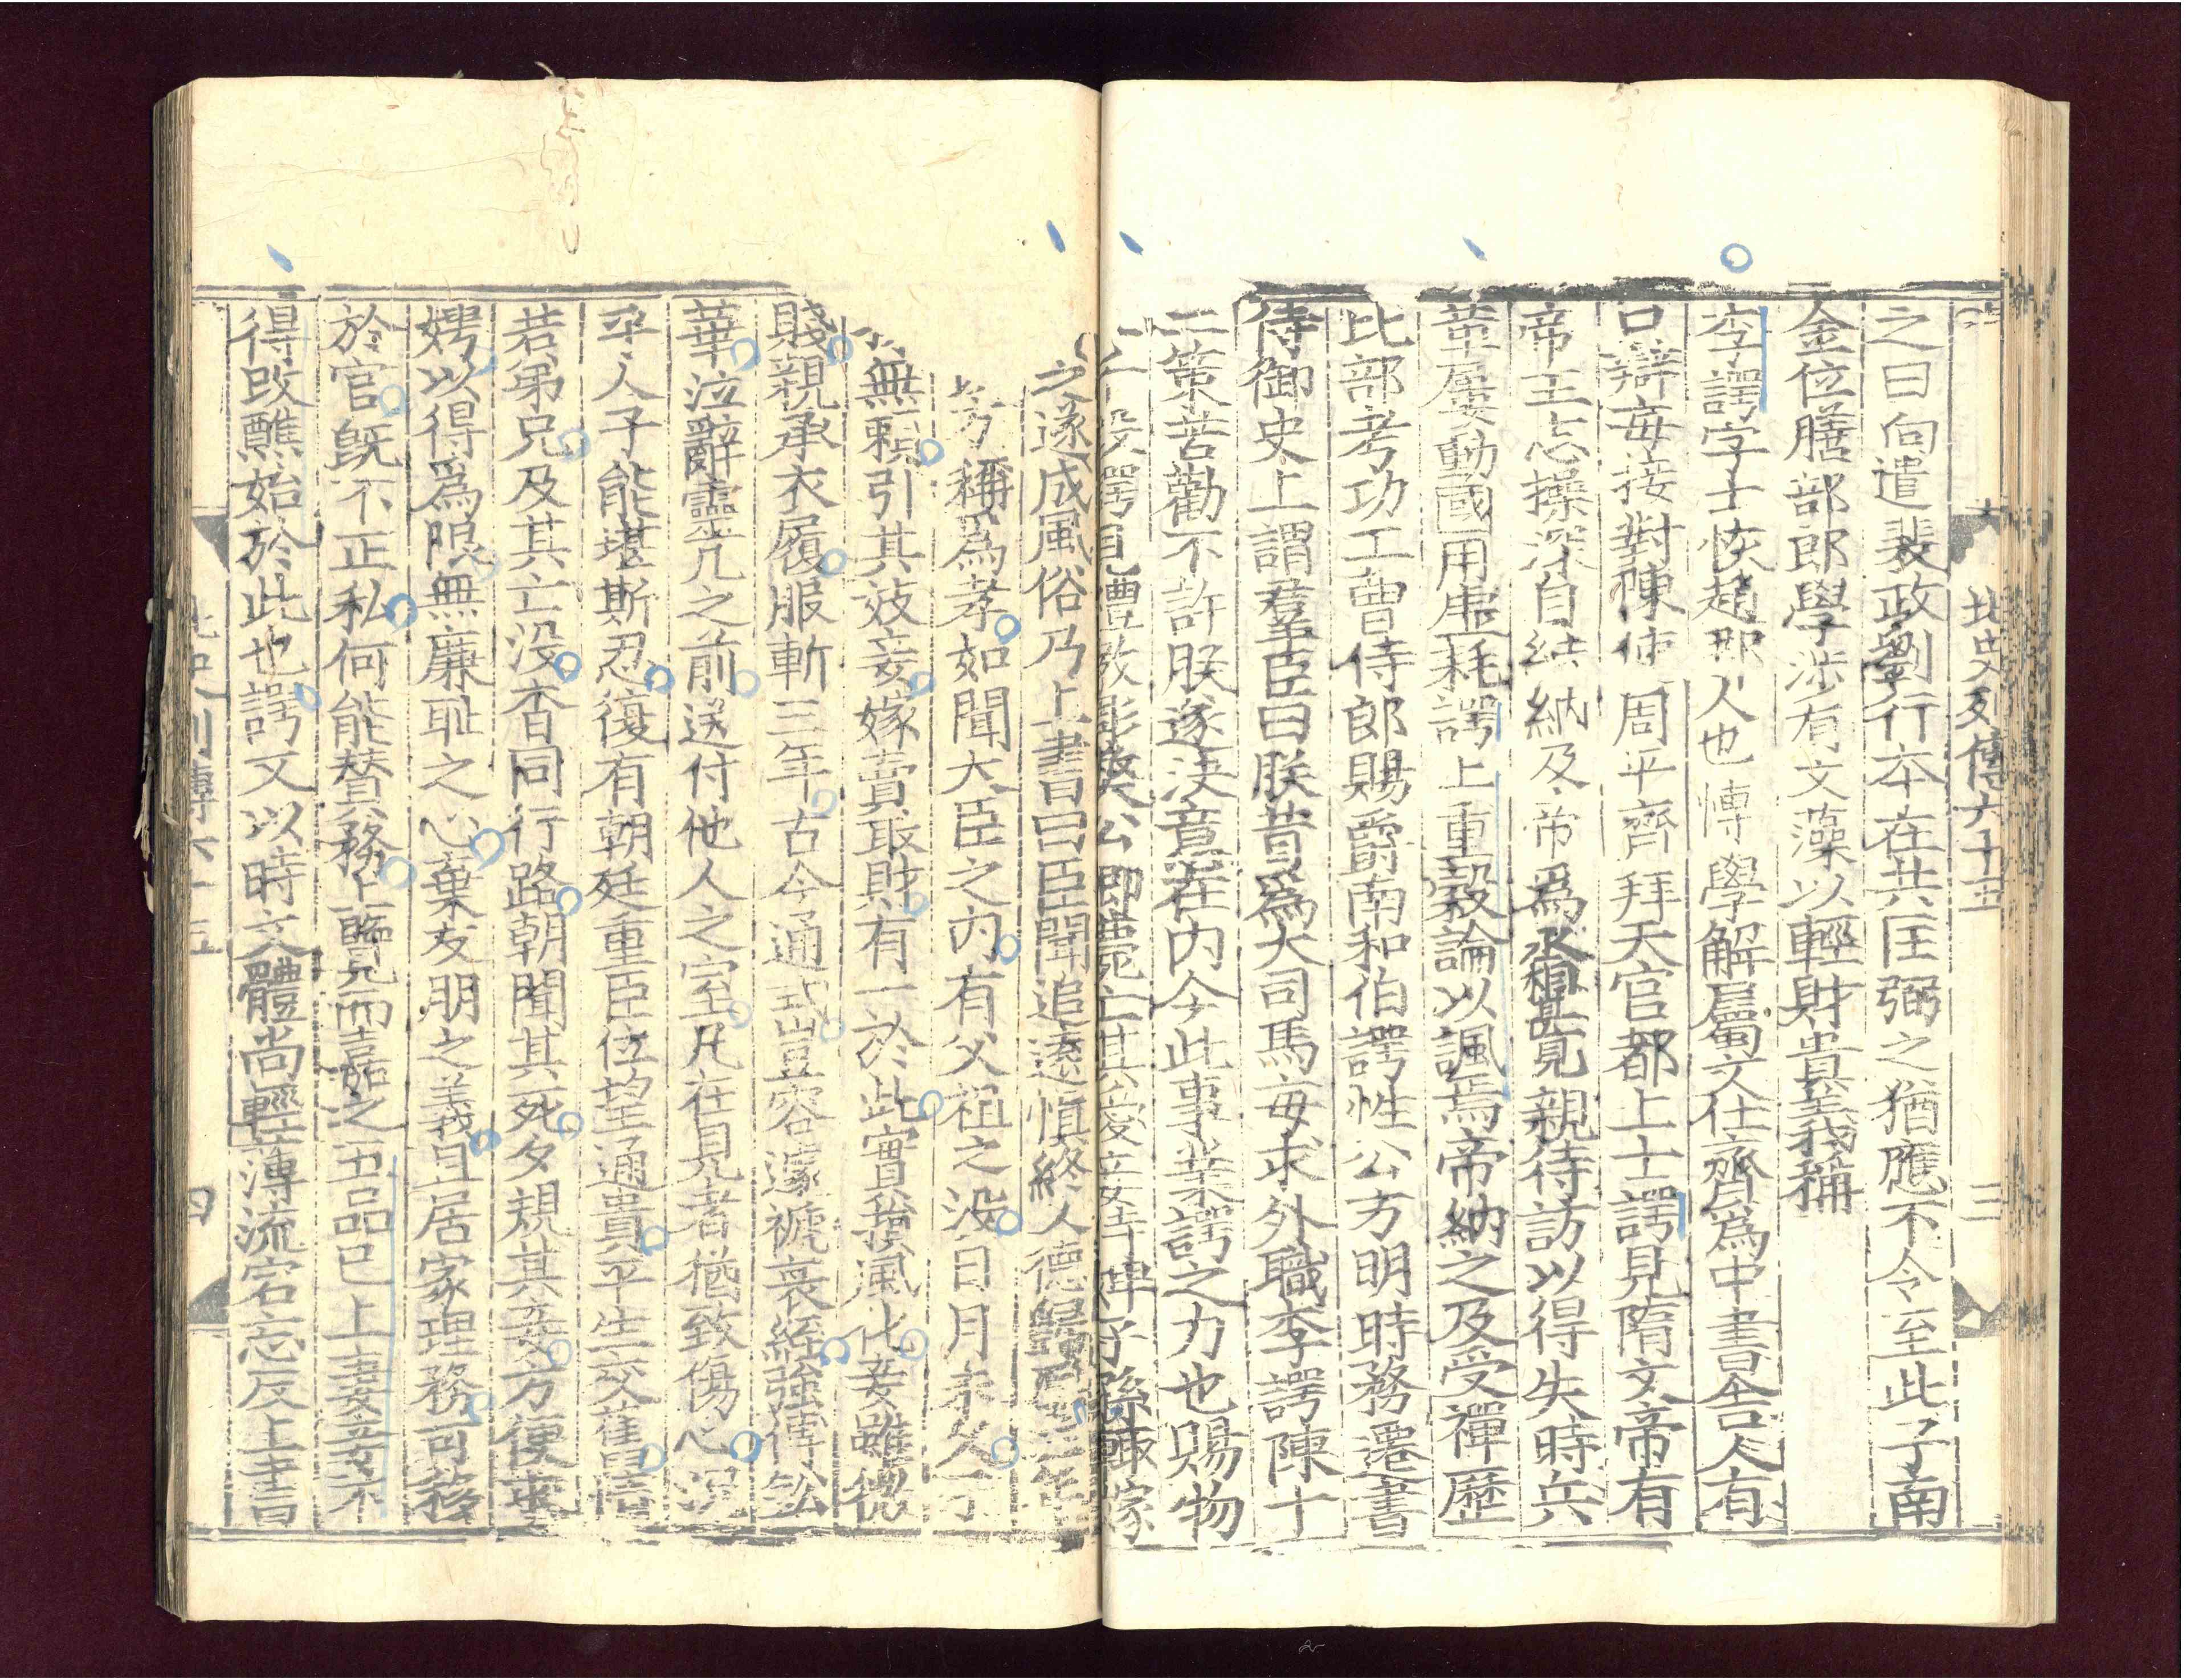 北史列傳六十五 三
之曰向遣裴政劉行本在共匡弼之猶應不令至此子南
金位膳部郎學涉有文藻以輕財貴義稱
李諤字士恢趙郡人也博學解屬文仕齊爲中書舍人有
口辯每接對陳使周平齊拜天官都上士諤見隋文帝有
帝王志操深自結納及帝爲丞相甚見親待訪以得失時兵
革屢動國用虛耗諤上重穀論以諷焉帝納之及受禪歷
比部考功工曹侍郎賜爵南和伯諤性公方明時務遷書
侍御史上謂羣臣曰朕昔爲大司馬每求外職李諤陳十
二策苦勸不許朕遂決意在内今此事業諤之力也賜物
二千段諤見禮教彫弊公卿薨亡其愛妾侍婢子孫輒嫁
之遂成風俗乃上書曰臣聞追遠慎終人德歸厚三年
方稱爲孝如聞大臣之内有父祖之没日月未久子
無賴引其妓妾嫁賣取財有一於此實損風化妾雖微
賤親承衣履服斬三年古今通式豈容遽褫衰絰強傅鉛
華泣辭靈几之前送付他人之室凡在見者猶致傷心況
乎人子能堪斯忍復有朝廷重臣位望通貴平生交舊情
若弟兄及其亡没杳同行路朝聞其死夕規其妾方便求
娉以得爲限無廉恥之心棄友朋之義且居家理務可移
於官旣不正私何能賛務上覽而嘉之五品已上妻妾不
得改醮始於此也諤又以時文體尚輕薄流宕忘反上書曰
北史列傳六十五 四